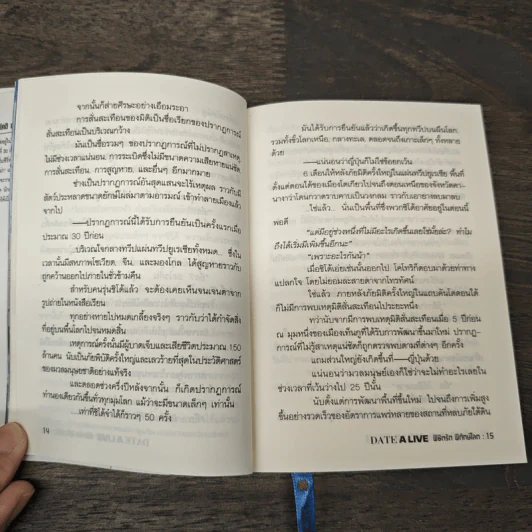 จากนั้นก็ส่ายศีรษะอย่างเอือมระอา
การสั่นสะเทือนของมิติเป็นชื่อเรียกของปรากฏการณ์
สั่นสะเทือนเป็นบริเวณกว้าง
มันเป็นชื่อรวมๆ ของปรากฏการณ์ที่ไม่ปรากฏสาเหตุ
ไม่มีช่วงเวลาแน่นอน การระเบิดซึ่งไม่มีขนาดความเสียหายแน่ชัด
การสั่นสะเทือน การสูญหาย และอื่นๆ อีกมากมาย
ช่างเป็นปรากฏการณ์อันสุดแสนจะไร้เหตุผล ราวกับมี
สัตว์ประหลาดขนาดยักษ์โผล่มาตามอารมณ์ เข้าทำลายเมืองแล้ว
จากไป
——ปรากฏการณ์นี้ได้รับการยืนยันเป็นครั้งแรกเมื่อ
ประมาณ 30 ปีก่อน
...บริเวณใจกลางทวีปแผ่นทวีปยูเรเซียทั้งหมด ซึ่งใน
เวลานั้นมีสหภาพโซเวียต จีน และมองโกล ได้สูญหายราวกับ
ถูกคว้านออกไปภายในชั่วข้ามคืน
สำหรับคนรุ่นชิโด้แล้ว จะต้องเคยเห็นจนเจนตาจาก
รูปถ่ายในหนังสือเรียน
ทุกอย่างหายไปหมดเกลี้ยงจริงๆ ราวกับว่าได้กำจัดสิ่ง
ที่อยู่บนพื้นโลกไปจนหมดสิ้น
เหตุการณ์ครั้งนั้นมีผู้บาดเจ็บและเสียชีวิตประมาณ 150
ล้านคน นับเป็นภัยพิบัติครั้งใหญ่และเลวร้ายที่สุดในประวัติศาสตร์
ของมวลมนุษยชาติอย่างแท้จริง
และตลอดช่วงครึ่งปีหลังจากนั้น ก็เกิดปรากฏการณ์
ทำนองเดียวกันขึ้นทั่วทุกมุมโลก แม้ว่าจะมีขนาดเล็กๆ เท่านั้น
...เท่าที่ชิโด้จำได้ก็ราวๆ 50 ครั้ง
14
มันได้รับการยืนยันแล้วว่าเกิดขึ้นทุกทวีปบนผืนโลก
รวมทั้งขั้วโลกเหนือ กลางทะเล ตลอดจนถึงเกาะเล็กๆ ทั้งหลาย
ด้วย
——แน่นอนว่าญี่ปุ่นก็ไม่ใช่ข้อยกเว้น
6 เดือนให้หลังภัยมิติครั้งใหญ่ในแผ่นทวีปยูเรเซีย พื้นที่
ตั้งแต่ตอนใต้ของเมืองโตเกียวไปจนถึงตอนเหนือของจังหวัดคา-
นางาว่าโดนกวาดราบคาบเป็นวงกลม ราวกับเอายางลบมาลบ
...ใช่แล้ว... นั่นเป็นพื้นที่ซึ่งพวกชิโด้อาศัยอยู่ในตอนนี้
พอดี
“แต่มีอยู่ช่วงหนึ่งที่ไม่มีอะไรเกิดขึ้นเลยใช่มั้ยล่ะ? ทำไม
ถึงได้เริ่มมีเพิ่มขึ้นอีกนะ”
“เพราะอะไรกันน้า”
เมื่อชิโด้เอ่ยเช่นนั้นออกไป โคโทริก็ตอบมาด้วยท่าทาง
แปลกใจ โดยไม่ยอมละสายตาจากโทรทัศน์
ใช่แล้ว ภายหลังภัยมิติครั้งใหญ่ในแถบคันโตตอนใต้
ก็ไม่มีการพบเหตุมิติสั่นสะเทือนไประยะหนึ่ง
ทว่านับจากมีการพบเหตุมิติสั่นสะเทือนเมื่อ 5 ปีก่อน
ณ มุมหนึ่งของเมืองเท็นกูที่ได้รับการพัฒนาขึ้นมาใหม่ ปรากฏ-
การณ์ที่ไม่รู้สาเหตุแน่ชัดก็ถูกตรวจพบตามที่ต่างๆ อีกครั้ง
แถมส่วนใหญ่ยังเกิดขึ้นที่——ญี่ปุ่นด้วย
แน่นอนว่ามวลมนุษย์เองก็ใช่ว่าจะไม่ทำอะไรเลยใน
ช่วงเวลาที่เว้นว่างไป 25 ปีนั้น
นับตั้งแต่การพัฒนาพื้นที่ขึ้นใหม่ ไปจนถึงการเพิ่มสูง
ขึ้นอย่างรวดเร็วของอัตราการแพร่หลายของสถานที่หลบภัยใต้ดิน
DATE A LIVE พิชิตรัก พิทักษ์โลก : 15